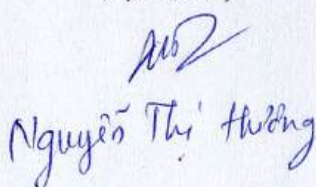 Nguyễn Thị Hường